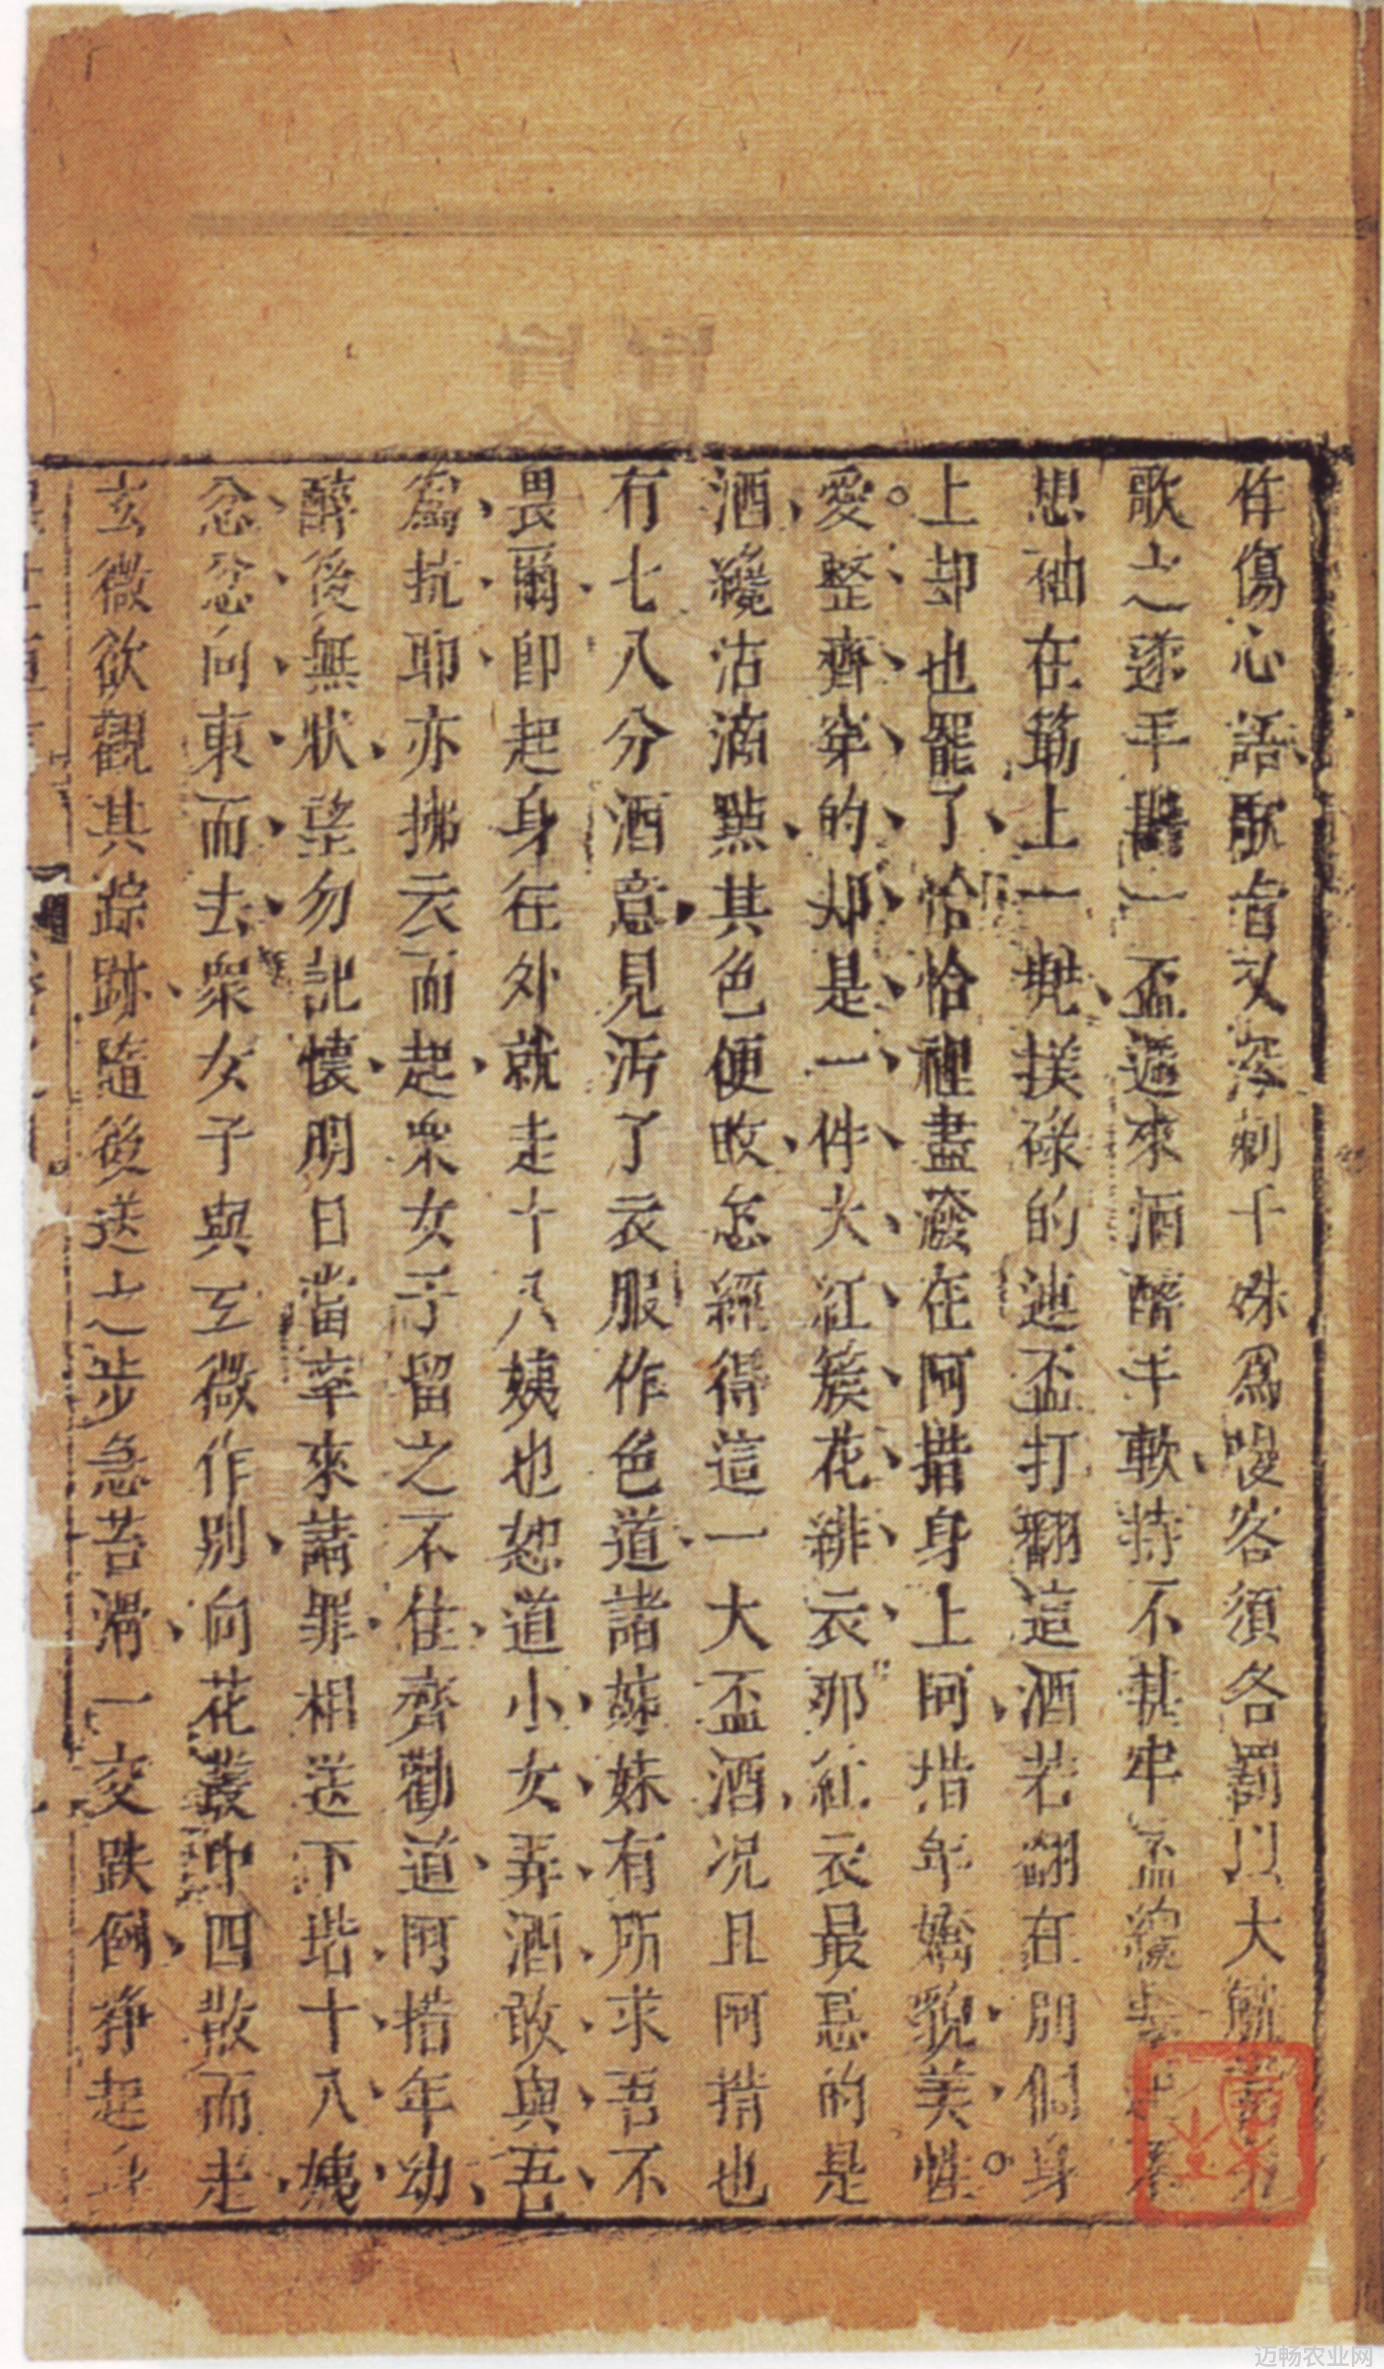 作傷心語歌旨又深刺于殊爲慢客須各罰以大觥當另
歌之遂手斟一盃遞來酒醉手軟持不甚牢盃纔
想袖在筯上一兜撲碌的連盃打翻這酒若翻在別個身
上却也罷了恰恰裡盡潑在阿措身上阿措年嬌貌美性
愛整齊穿的却是一件大紅簇花緋衣那紅衣最忌的是
酒纔沾滴點其色便敗怎經得這一大盃酒况且阿措也
有七八分酒意見污了衣服作色道諸姊妹有所求吾不
畏爾即起身往外就走十八姨也怒道小女弄酒敢與吾
爲抗耶亦拂衣而起衆女子留之不住齊勸道阿措年幼
醉後無狀望勿記懷明日當率來請罪相送下堦十八姨
忿忿向東而去衆女子與玄微作別向花叢中四散而走
玄微欲觀其踪跡隨後送之步急苔滑一交跌倒掙起身
迈畅农业网